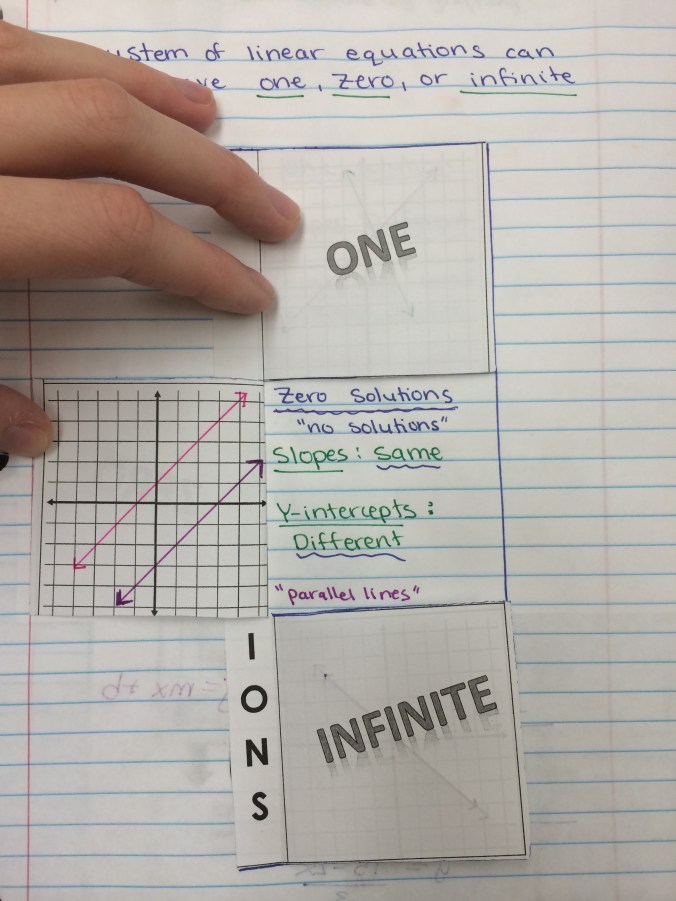 ystem of linear equations can
ve one, zero, or infinite
ONE
Zero Solutions
"no solutions"
Slopes: Same
Y-intercepts:
Different
"parallel lines"
I
O
N
S
INFINITE